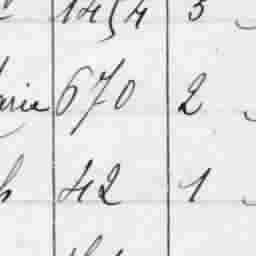 1454 3
arie 670 2
h 42 1